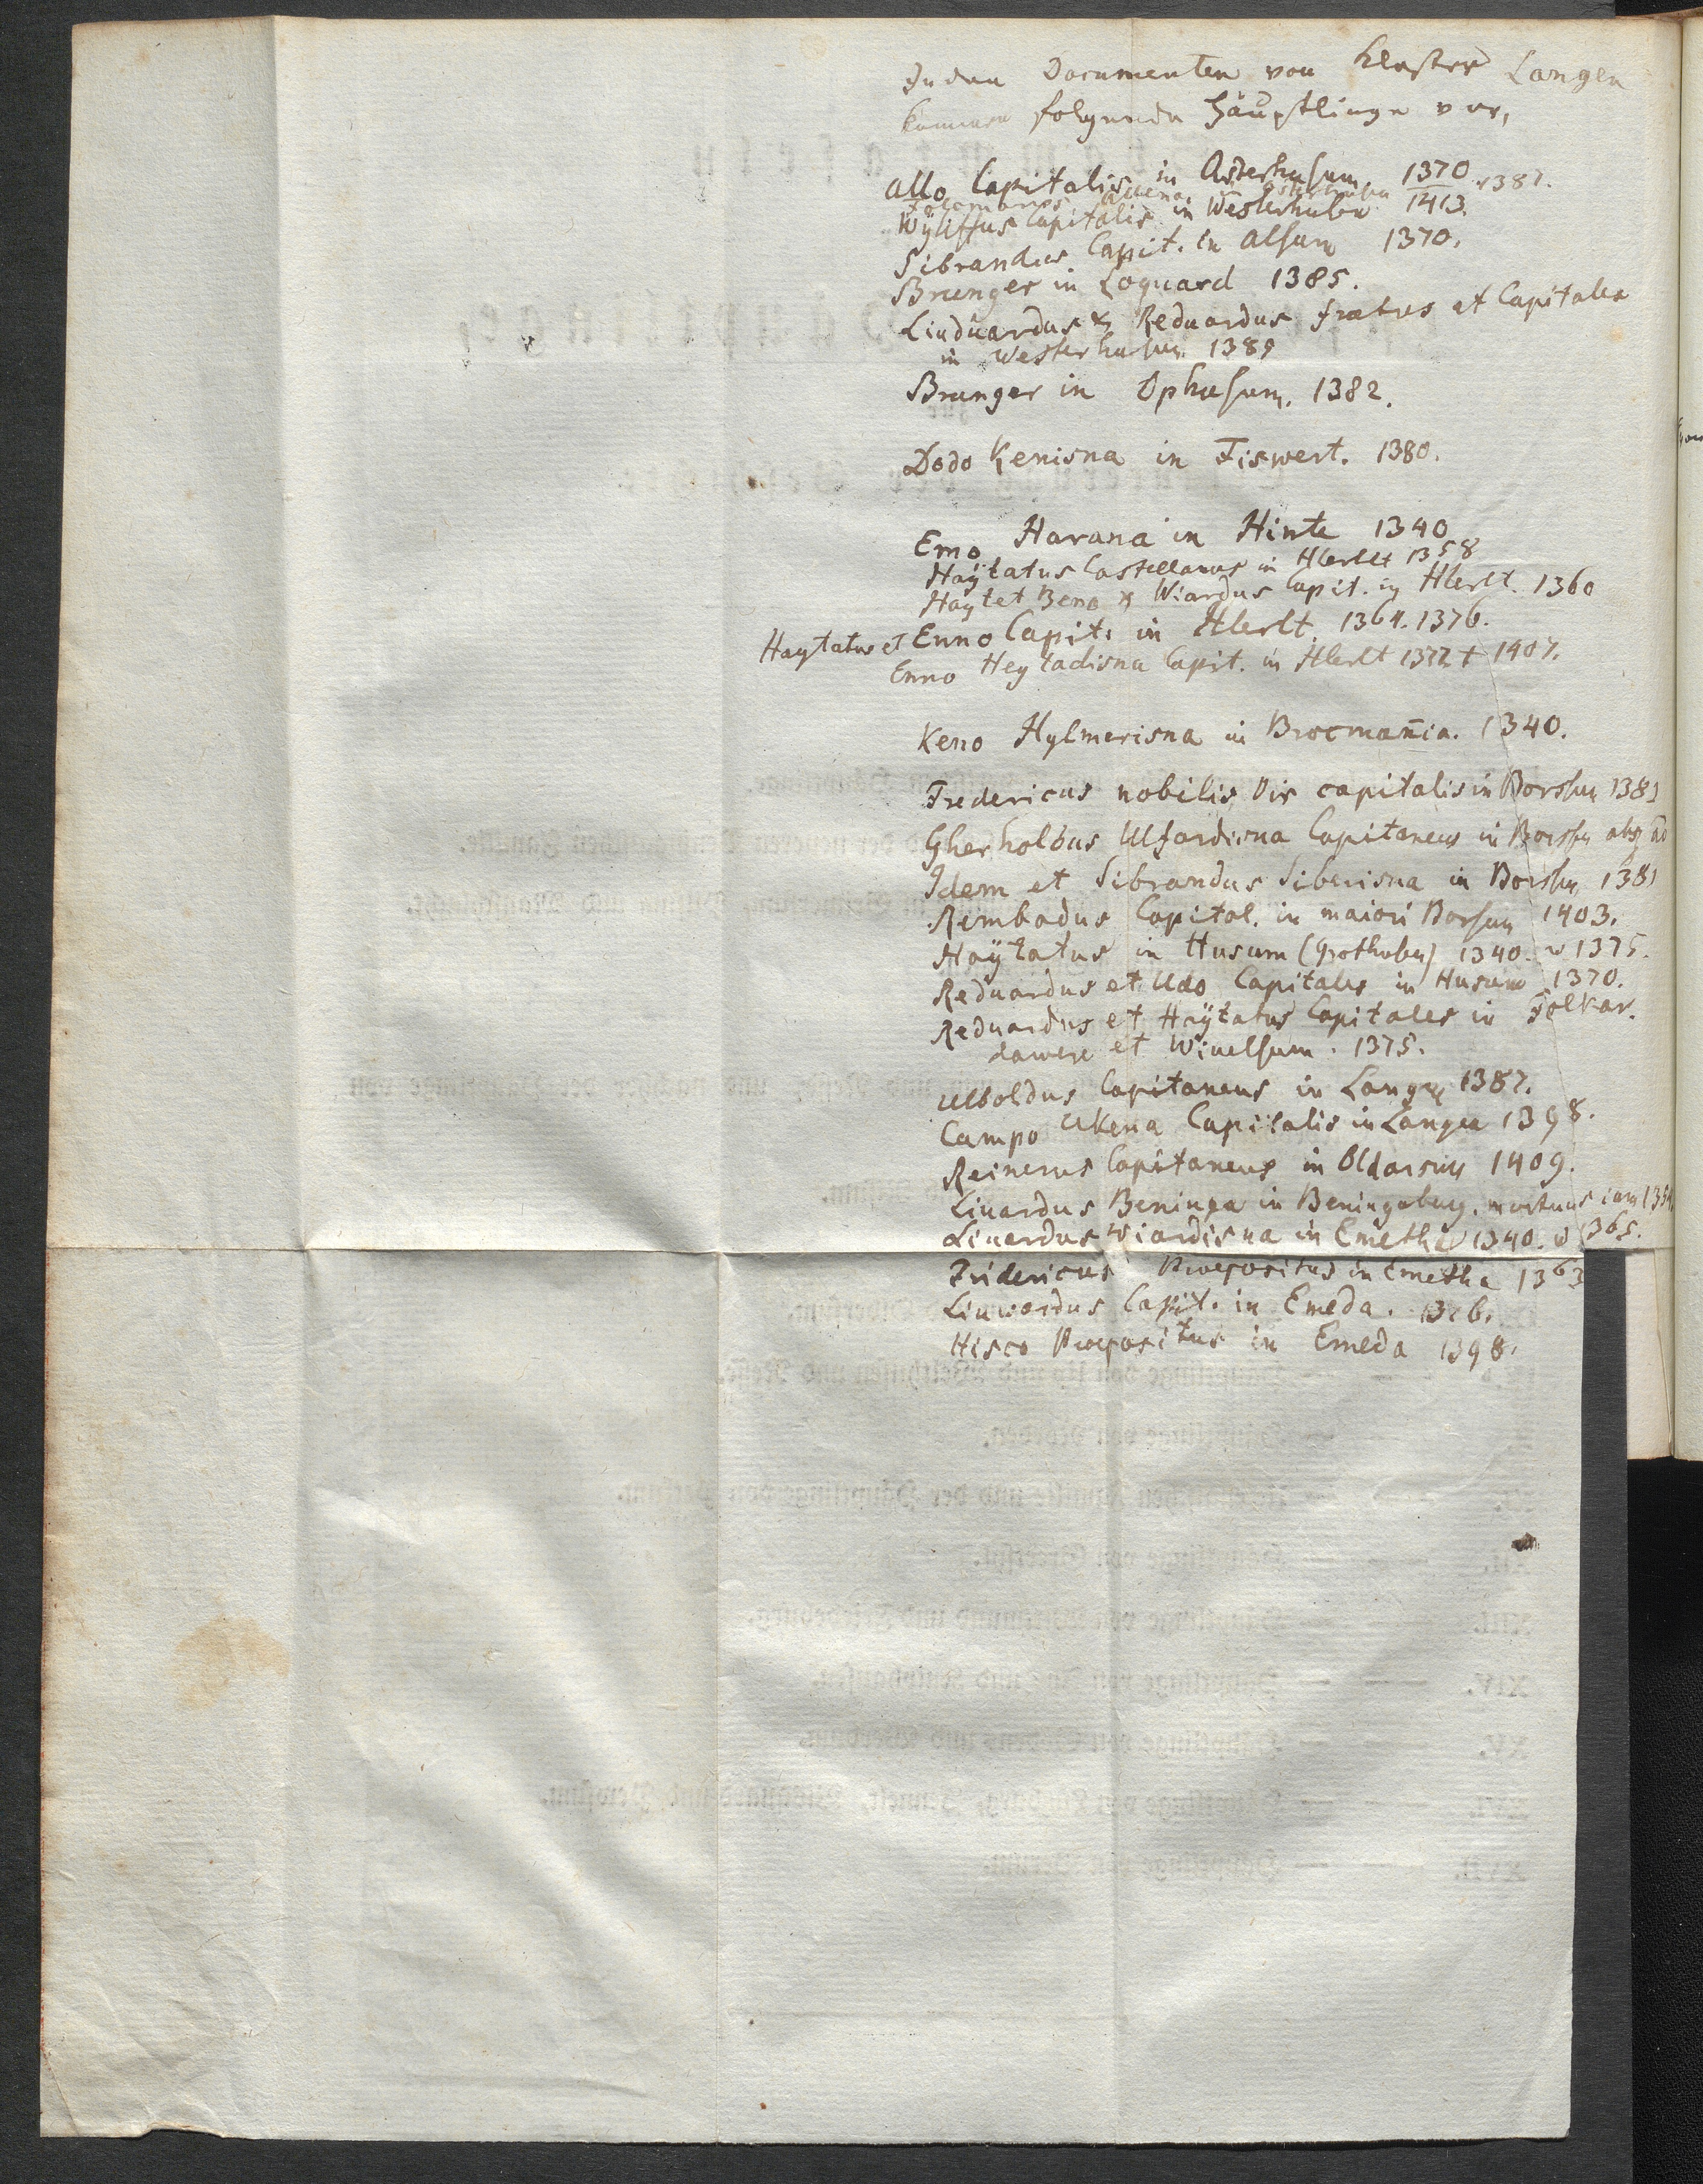 In den Documenten von Kloster Langen
kommen folgende Häuptlinge vor,
Allo Capitalis in Asterhusum 1370 1387.
Folcmarus Allena in Osterhusen
Wÿliffus Capitalis in Westerhusen 1413.
Sibrandus Capit. in Alsum 1370.
Brunger in Loquard 1385.
Liuduardus & Reduardus fratres et Capitales
in Westerhusum 1389
Brunger in Ophusum. 1382.
Dodo Kenisna in Fiswert. 1380.
Emo Harana in Hinte 1340
Haÿtatus Castellanus in Hlerlt 1358
Haytet Beno & Wiardus Capit. in Hlerlt. 1360
Haytatus et Enno Capit. in Hlerlt. 1364. 1376.
Enno Heytadisna Capit. in Hlerlt 1372 † 1407.
Keno Hylmerisna in Brocmañia. 1340.
Fredericus nobilis Vir capitalis in Borssum 1381
Gherholdus Ulfardisna Capitaneus in Borssum
Idem et Sibrandus Siberisna in Borssum 1381
Rembadus Capital. in maiori Borsum 1403.
Haÿtatus in Husum (Grothusen) 1340. 1375.
Reduardus et Udo Capitales in Husum 1370.
Reduardus et Haÿtatus Capitales in Folkar.
dawere et Wiuelsum. 1375.
Ulboldus Capitaneus in Langen 1387.
Campo Ukena Capitalis in Langen 1398.
Reinerus Capitaneus in Oldarsum 1409.
Liuardus Beninga in Beningaburg. mortuus iam
Liuardus Wiardisna in Emetha 1340. 1365.
Fridericus Praepositus in Emetha 1363
Liuwardus Capit. in Emeda. 1376.
Hisco Praepositus in Emeda 1398.